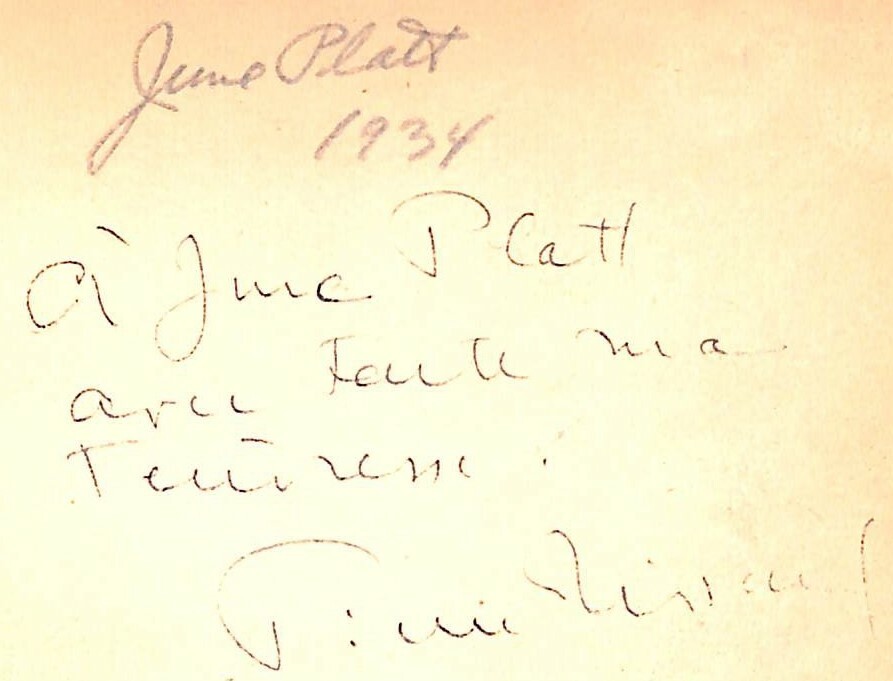 June Platt
1934
À June Platt
avec toute ma
tendresse.